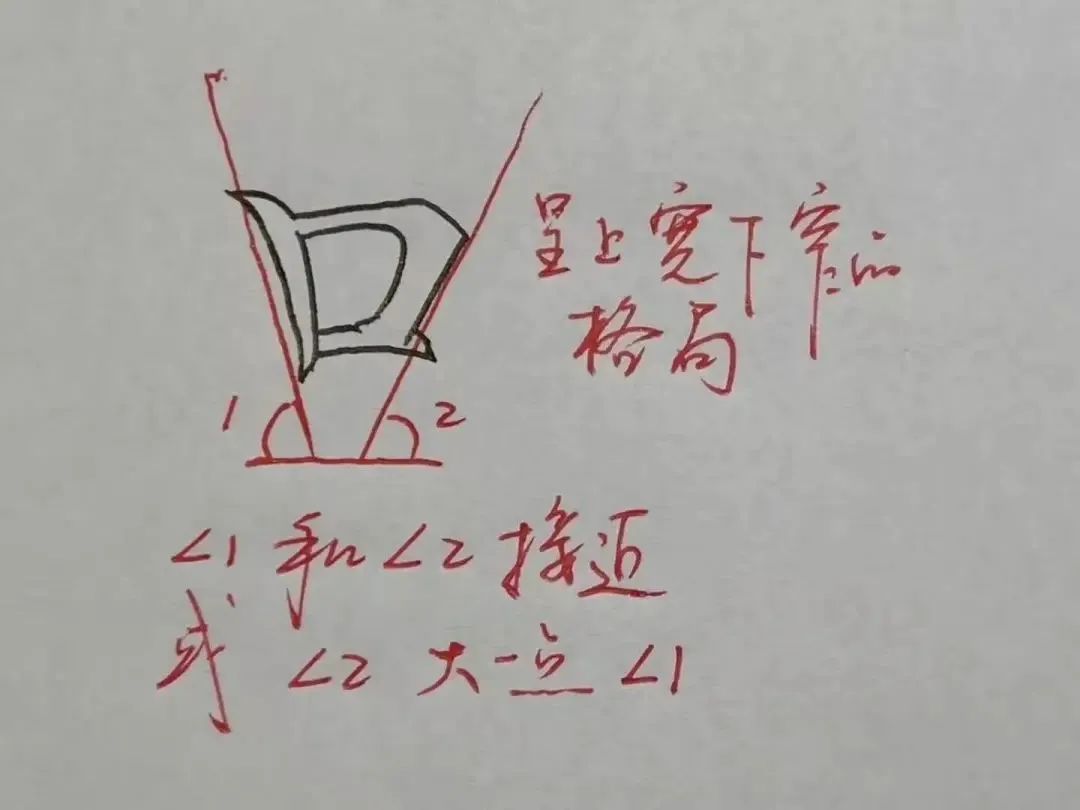 呈上宽下窄的
格局
1
2
∠1 和 ∠2 接近
或 ∠2 大一点 ∠1